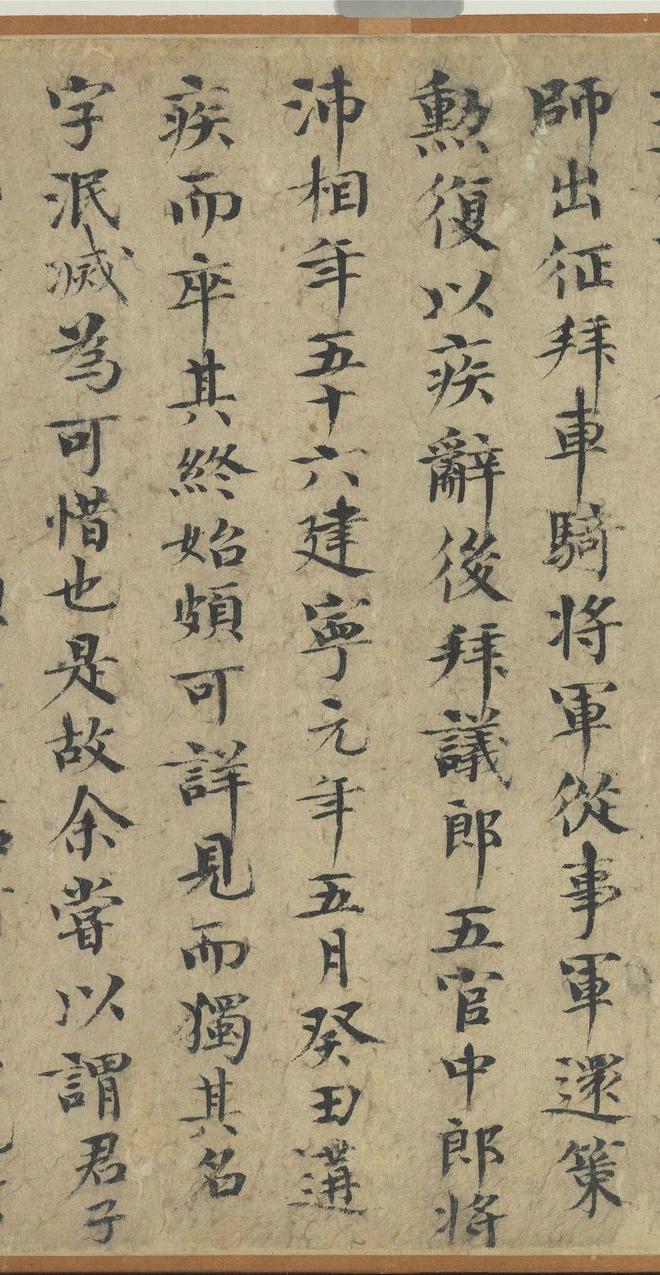 師出征拜車騎將軍從事軍還策
勲復以疾辭後拜議郎五官中郎將
沛相年五十六建寧元年五月癸丑遘
疾而卒其終始頗可詳見而獨其名
字泯滅為可惜也是故余嘗以謂君子